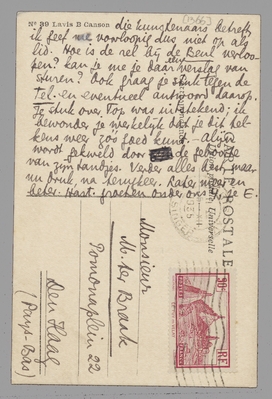 Nº 39 Lavis B Canson
die kunstenaars betreft,
ik geef me voorloopig dus niet op als
lid. Hoe is de rel bij de Beul verloo-
pen? kan je me je daar verslag van
sturen? Ook graag je stuk tegen de
Tel. en eventueel antwoord daarop.
Je stuk over Pop was uitstekend; ik
bewonder je werkelijk dat je dit tel-
kens weer zoo goed kunt. Alijn
wordt gekweld door de geboorte
van zijn tandjes. Verder alles best, maar
nu druk, na terugkeer. Later meer en
beter. Hart. groeten onder ons, je E.
POSTALE
Universelle
Monsieur
M. ter Braak
Pomonaplein 22
Den Haag
(Pays-Bas)
RF